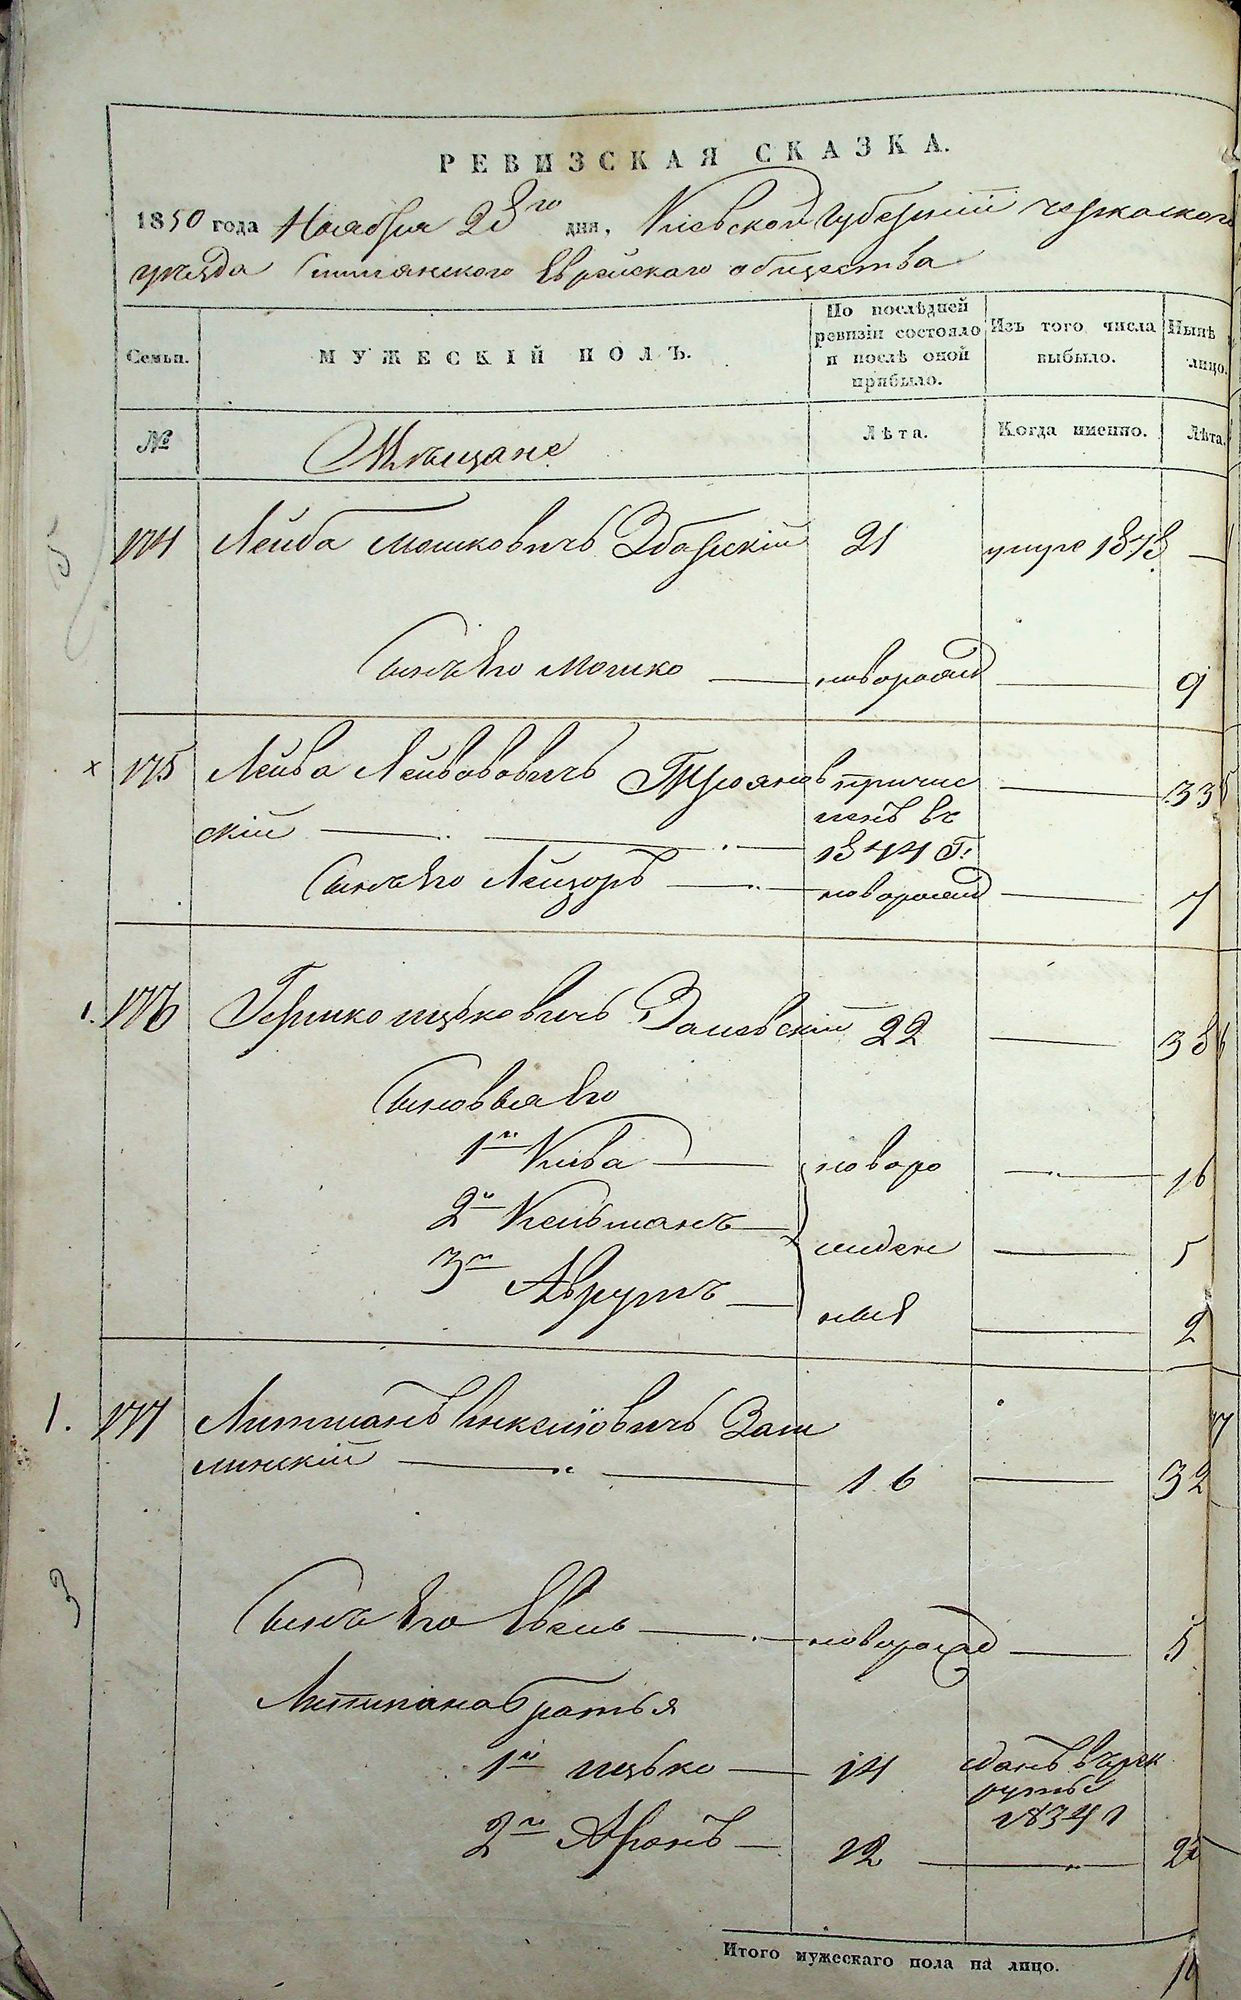 РЕВИЗСКАЯ СКАЗКА.
1850 года Ноября 28го дня, Киевской Губернии черкаского
уезда Еврейскаго общества
Семьи. МУЖЕСКІЙ ПОЛЪ. По послѣдней ревизіи состояло и послѣ оной прибыло. Изъ того числа выбыло. Нынѣ лицо.
№ Мещане Лѣта. Когда именно. Лѣта.
174 Лейба Мошковичъ Збарскій 21 умре 1848 —
Сынъ Его Мошко — новорожд — 9
x 175 Лейба Лейбовичъ Трояновскій причисленъ въ 1844 Г. — 33
Сынъ Его Лейзоръ — новорожд — 7
1. 176 Гершко ицковичъ 22 — 38
Сыновья Его
1й Кива — новоро — 16
2й Кельманъ — жден — 5
3й Аврумъ — ные — 2
1. 177 Литманъ
линскій — 16 — 32
3
Сынъ Его — новорожд — 5
Литмана братья
1й ицько — 14 сданъ в рекруты
2й Аронъ — 12 —
Итого мужескаго пола на лицо.